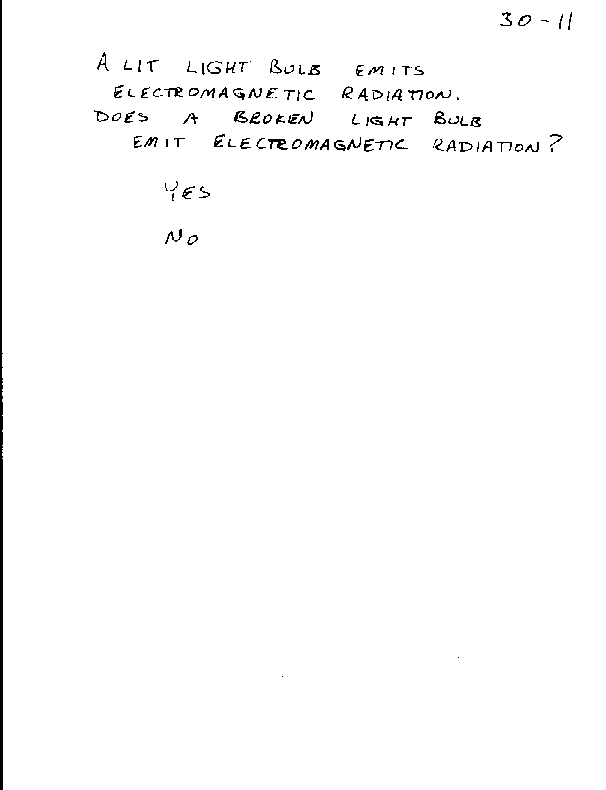 30-11
A LIT LIGHT BULB EMITS
ELECTROMAGNETIC RADIATION.
DOES A BROKEN LIGHT BULB
EMIT ELECTROMAGNETIC RADIATION?
YES
NO